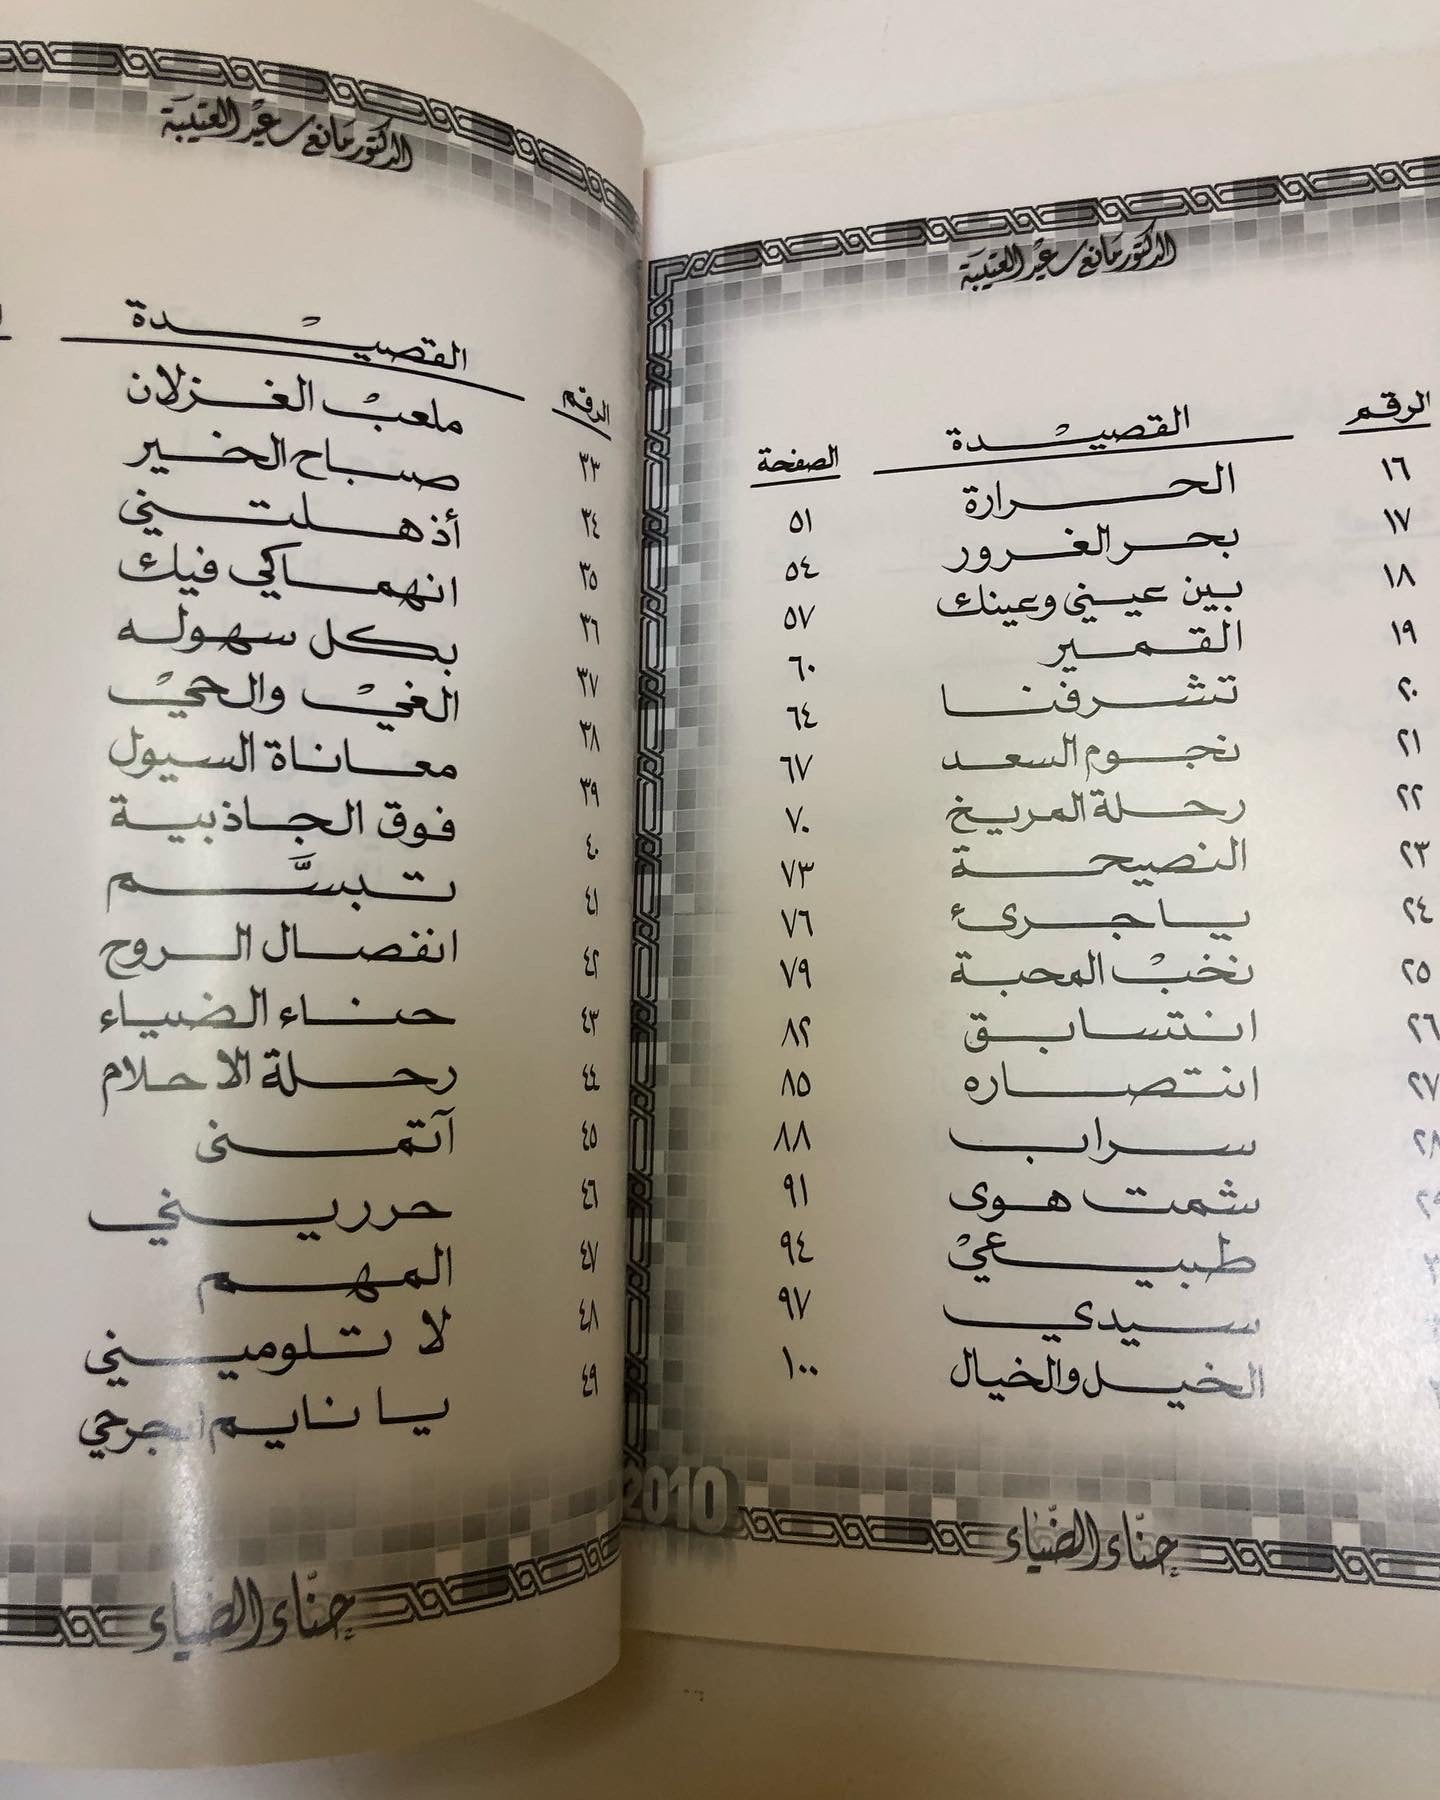 الدكتور مانع سعيد العتيبة
الرقم القصيدة الصفحة
١٦ الحرارة ٥١
١٧ بحر الغرور ٥٤
١٨ بين عيني وعينك ٥٧
١٩ القمير ٦٠
٢٠ تشرفنا ٦٤
٢١ نجوم السعد ٦٧
٢٢ رحلة المريخ ٧٠
٢٣ النصيحة ٧٣
٢٤ يا جرىء ٧٦
٢٥ نخب المحبة ٧٩
٢٦ انتسابق ٨٢
٢٧ انتصاره ٨٥
٢٨ سراب ٨٨
٢٩ شمت هوى ٩١
طبيعي ٩٤
سيدي ٩٧
الخيل والخيال ١٠٠
2010
حنّاء الضّياء
الدكتور مانع سعيد العتيبة
الرقم القصيدة
٣٣ ملعب الغزلان
٣٤ صباح الخير
٣٥ أذهلتني
٣٦ انهماكي فيك
٣٧ بكل سهوله
٣٨ الغي والحي
٣٩ معاناة السيول
٤٠ فوق الجاذبية
٤١ تبسَّم
٤٢ انفصال الروح
٤٣ حناء الضياء
٤٤ رحلة الاحلام
٤٥ آتمنى
٤٦ حرريني
٤٧ المهم
٤٨ لا تلوميني
٤٩ يا نايم الجرحي
حنّاء الضّياء